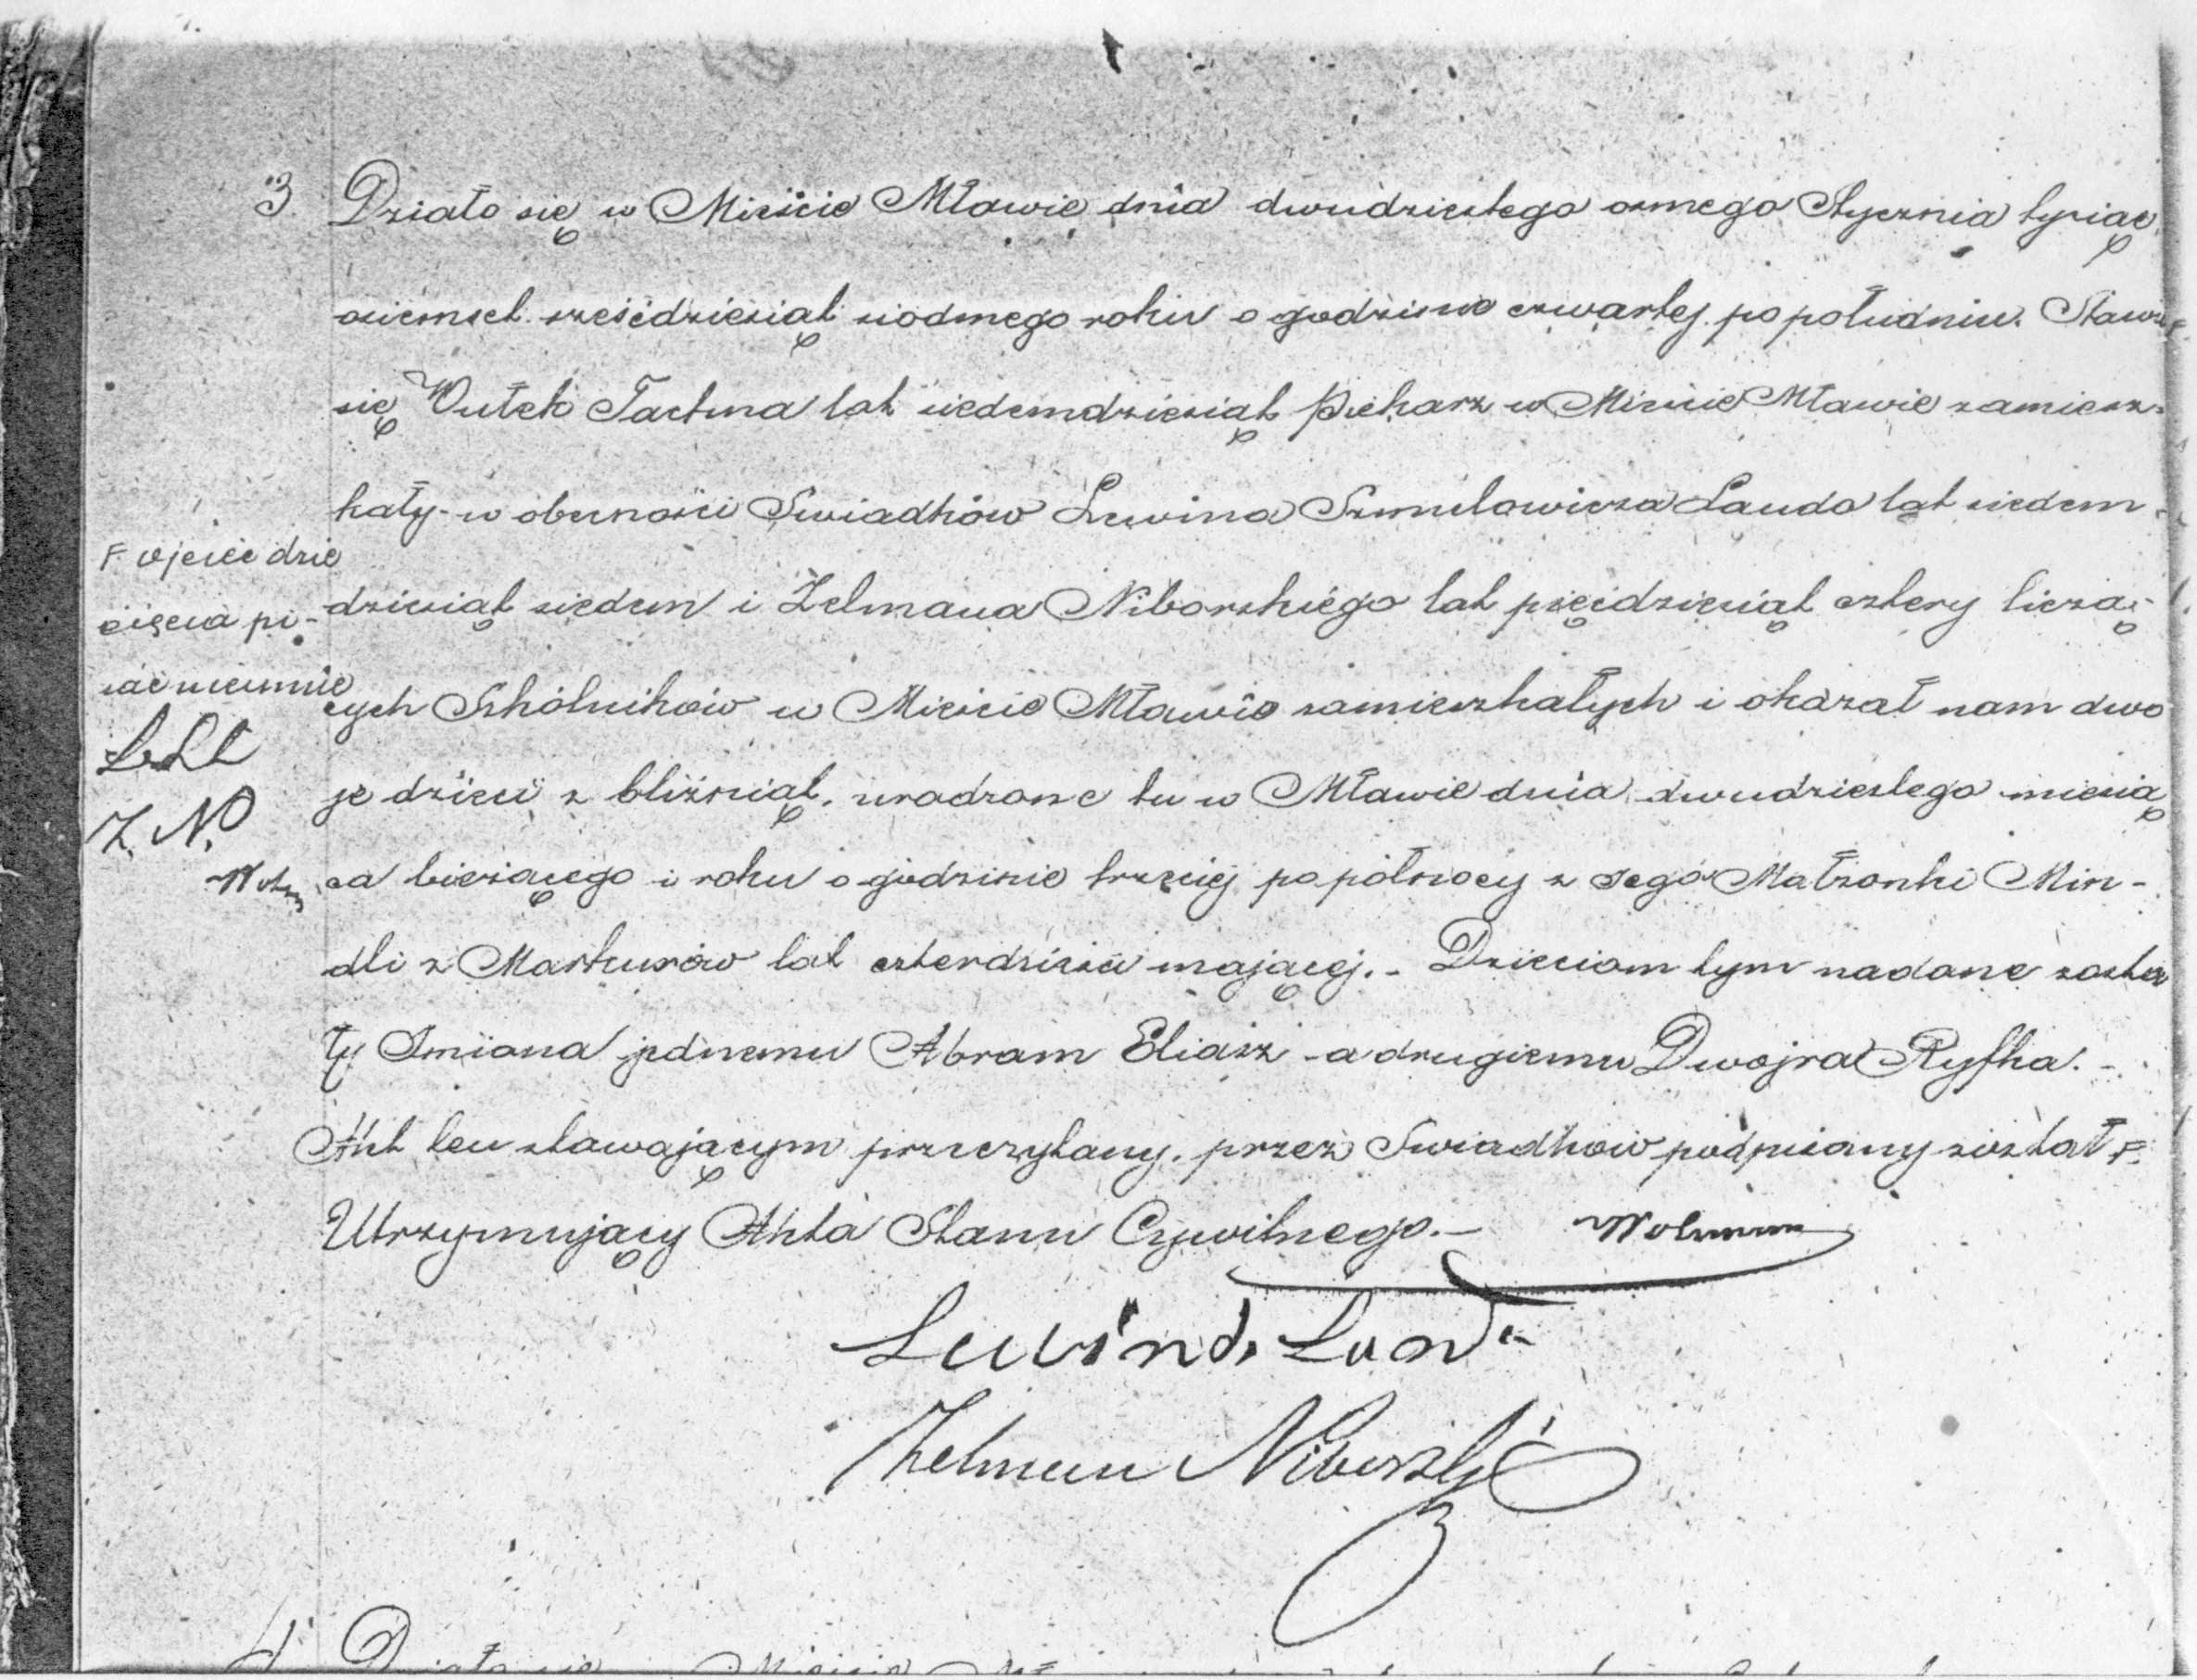 3. Działo się w Mieście Mławie dnia dwudziestego osmego Stycznia tysiąc
osiemset sześćdziesiąt siodmego roku o godzinie czwartej po południu. Stawił
się Wułek Tachna lat siedemdziesiąt Piekarz w Mieście Mławie zamiesz-
kały - w obecności Swiadków Lewina Szmulowicza Lauda lat siedem
dziesiąt siedem i Zelmana Niborskiego lat pięćdziesiąt cztery licza-
cych Szkolników w Mieście Mławie zamieszkałych i okazał nam dwo
je dzieci z bliźniąt, urodzone tu w Mławie dnia dwudziestego miesią
ca bieżącego i roku o godzinie trzeciej po północy z jego Małżonki Min-
dli z Maśturów lat czterdzieści mającej. - Dzieciom tym nadane zosta
ły Imiona jednemu Abram Eliasz - a drugiemu Dwojra Ryfka. -
Akt ten stawającym przeczytany, przez Swiadków podpisany został F.
Utrzymujący Akta Stanu Cywilnego. -
F. ojciec dzie
cięcia pi-
sać nieumie
L. L.
Z. N.
Lewin L.
Zelman Niborski
4. Działo się w Mieście